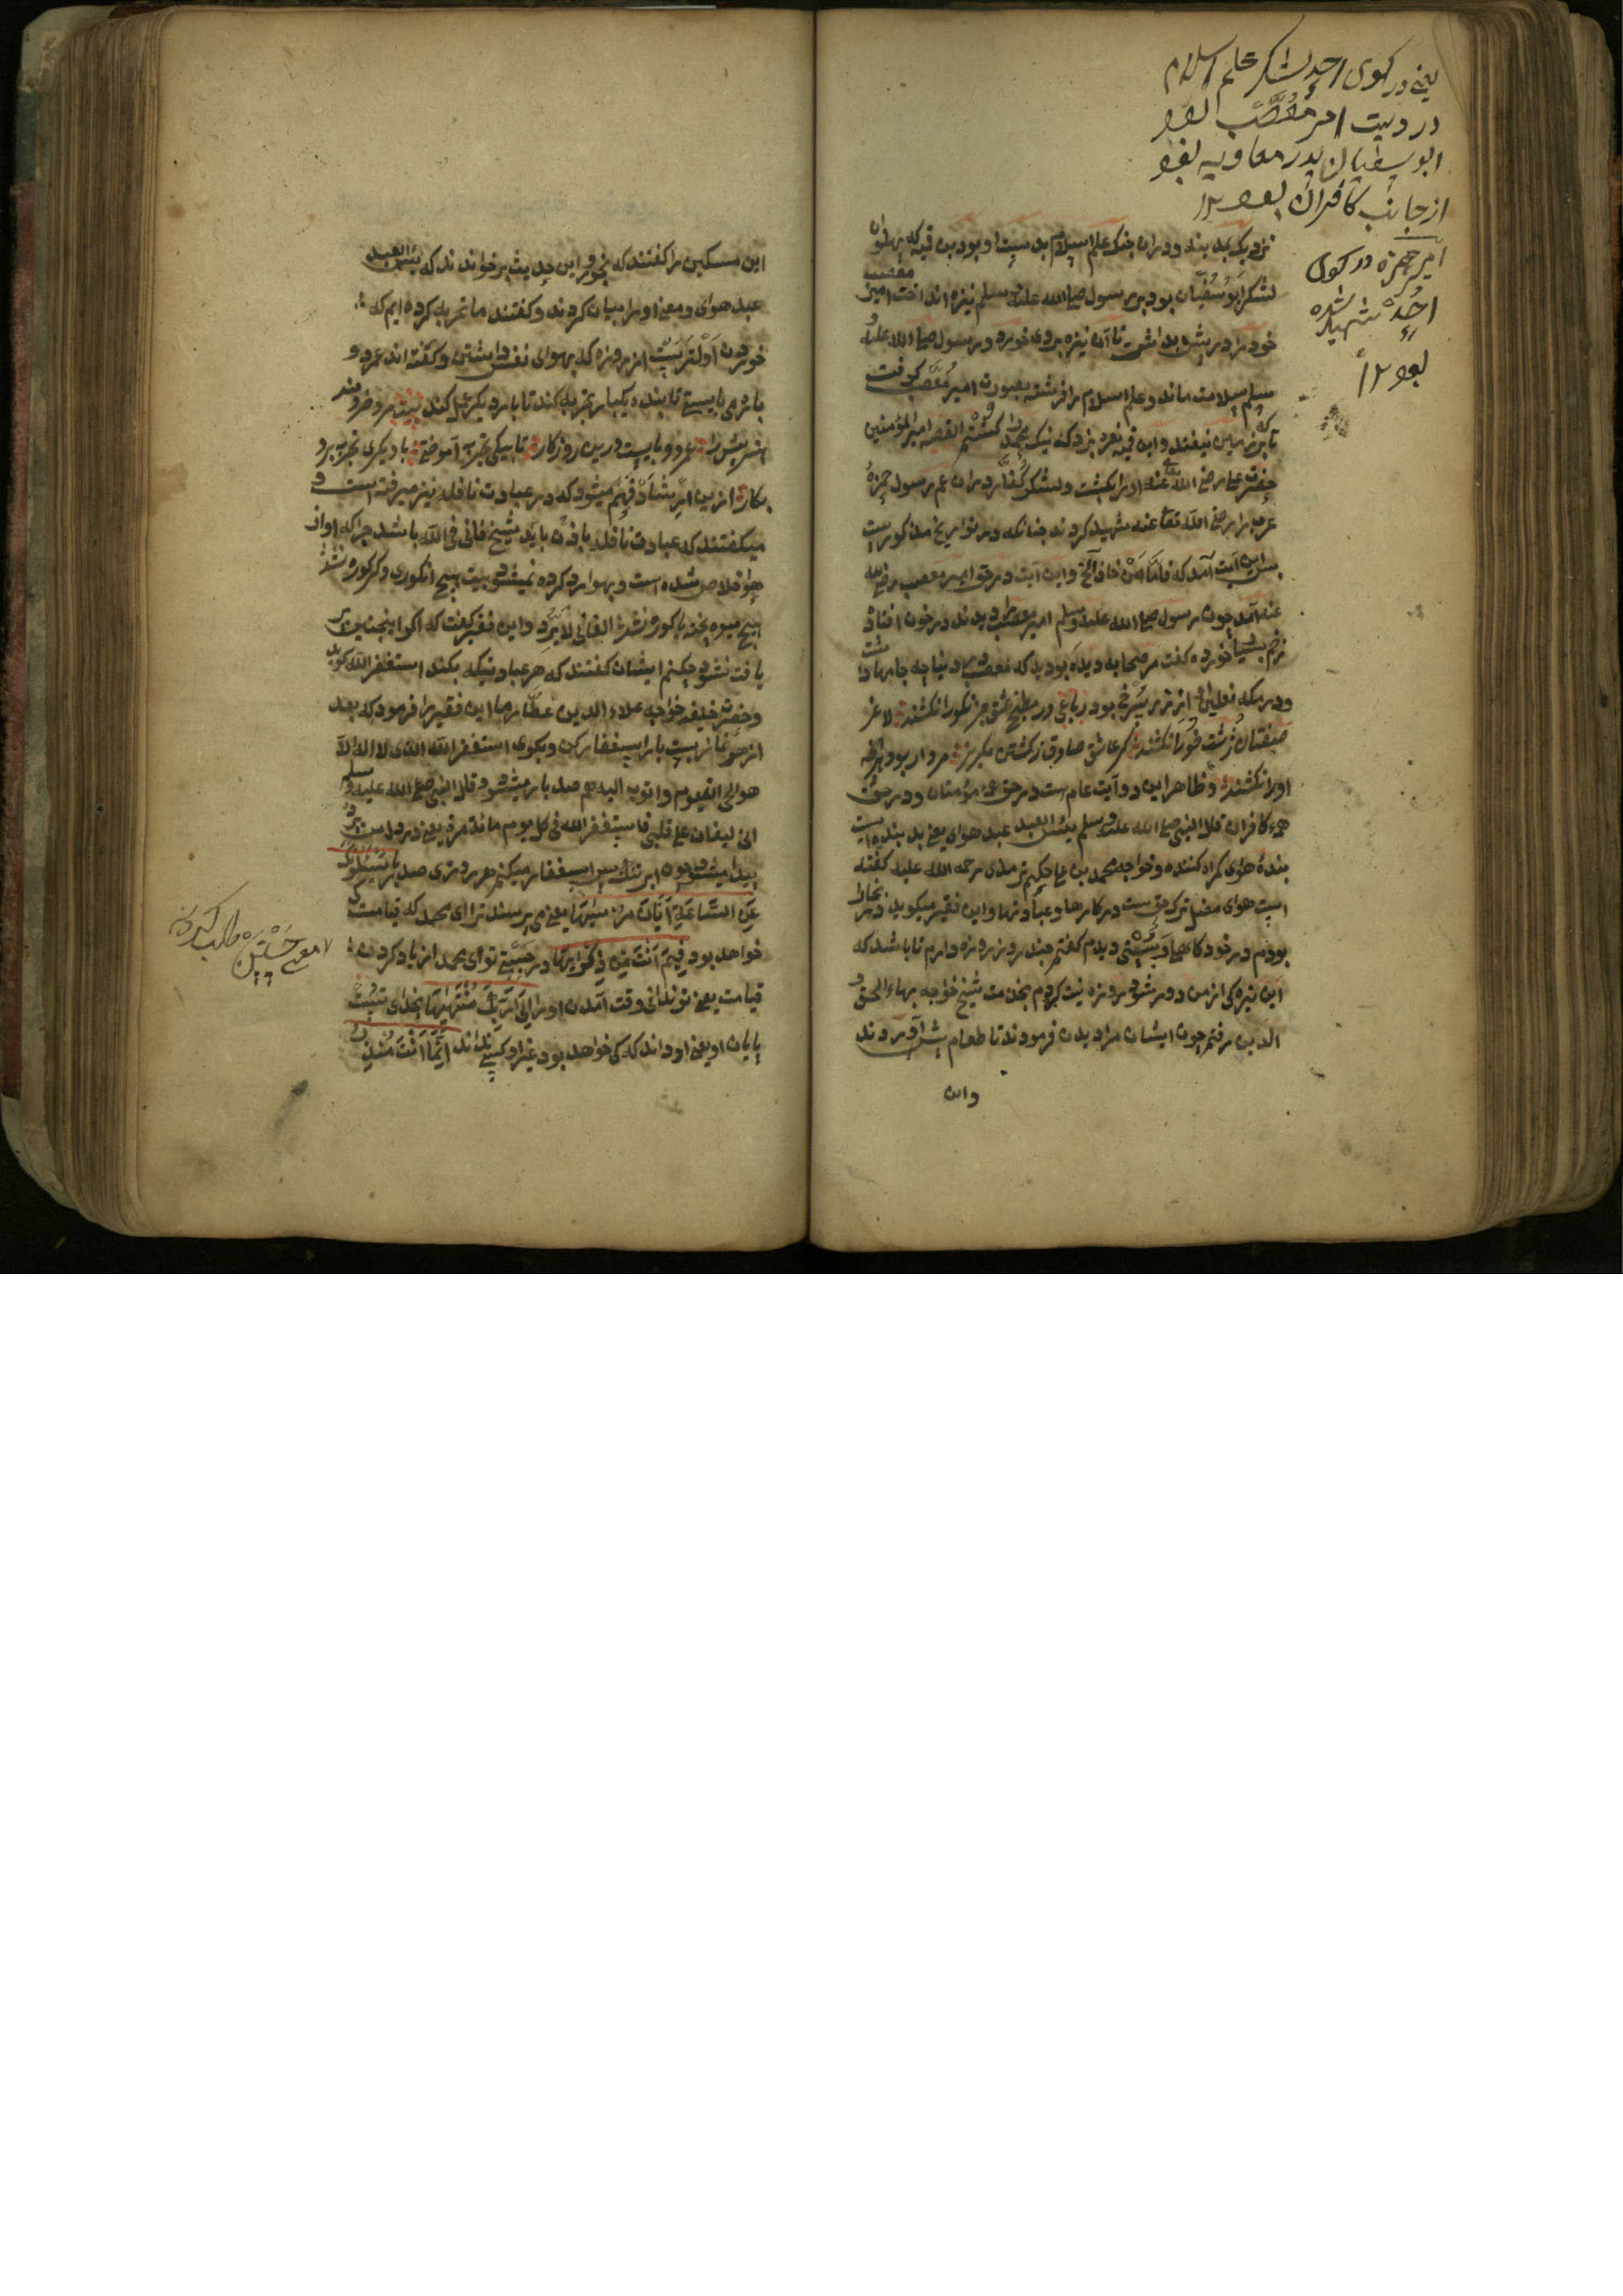 یعنی در کوی احد لشکر علم اسلام
در دست امیر مُصعَب بود
ابو سفیان پدر معاویه بود
از جانب کافران بود ۱۲
امیر حمزه در کوی
اُحُد شهید شده
بود ۱۲
نزدیک بمدینه و در ان جنک علم اسلام بدست او بود بن قمیه که پهلوان
لشکر ابوسُفیان بود بر رسول صلی الله علیه وسلم نیزه انداخت امیر مصعب
خود را در پیش بداشت تا آن نیزه بر وی خورد و رسول صلی الله علیه و
سلم سلامت ماند و علم اسلام را فرشته بصورت امیر مُصعَب کرفت
تا بر زمین نیفتد و ابن قمیه نعره بزد که نیک محمد را کُشتم القصه امیر المؤمنین
حضرت علی رضی الله تعا عنه او را بکشت و لشکر کُفّار در ان عم رسول حمزهٔ
عرب را رضی الله تعا عنه شهید کردند جنانکه در تواریخ مذکور است
پس این آیت آمد که فَاَمَّا مَنْ خافَ الخ و این آیت در حق امیر مصعب رضی الله
عنه آمد چون رسول صلی الله علیه وسلم امیر مصعب را دیدند در خون افتاده
زخم بسیار خورده کفت مر صحابه دیده بودید که مصعب در دنیا چه جامها داشت
و در مکه نعلین او از زر سُرخ بود رباعی در مطبخ عشق جز نکو را نکشند لاغر
صفتان زشت خو را نکشند کر عاشق صادقی ز کشتن مکریز مردار بود هر انکه
او را نکشند و ظاهر این دو آیت عام است در حق همهٔ مؤمنان و در حق
همهٔ کافران قال النبی صلی الله علیه وسلم بِئس العبد عبد هوای یعنی بد بنده ایست
بندهٔ هوای کمراه کننده و خواجه محمد بن علی حکیم ترمذی رحمه الله علیه کفته
است هوای مضل ترک حق است در کارها و عبادتها و این فقیر میکوید در بخارا
بودم در خود کاهلی و سُستی دیدم کفتم چند روز روزه دارم تا باشد که
این تیره کی از من دور شود روزه نیت کردم بخدمت شیخ خواجه بهاء الحق و
الدین رفتم چون ایشان مرا دیدن فرمودند تا طعام پیش آوردند
و این
این مسکین را کفتند که بخور و این حدیث بر خواندند که بئس العبد
عبد هوای و معنی او را بیان کردند و کفتند ما تجربه کرده ایم که
خوردن اَوْلیٰتَر است از روزه که بهوای نفس داشتن و کفته اند عمر دو
بارهٔ بایستی تا بنده یکبار تجربه کند تا بار دیکر عمل کند بیت مرد خردمند
هنر پیش را عمر دو بایست درین روزکار تا بیکی تجربه آموختن با دیکری تجربه بردن
بکار ازین ارشاد فهم میشود که در عبادت نافله نیز میرفته است و
میکفتند که عبادت نافله باذن باید شیخ فانی فی الله باشد چرا که او از
هوا خلاص شده است و بهوا رد کرده نمیشود بیت هیچ انکوری دکر غوره نشد
هیچ میوه پخته با کوره نشد الفانی لا یُرَد و این فقیر کفت که اکر اینچنین پیر
یافت نشود چکنم ایشان کفتند که هر عبادتیکه بکند استغفر الله کوید
و حضرت خلیفه خواجه علاء الدین عطّار ما این فقیر را فرمود که بعد
از هر نماز بیست بار استغفار کن و بکوی استغفر الله الذی لا اله الا
هو الحی القیوم و اتوب الیه هم صد بار میشود قال النبی صلی الله علیه وسلم
انی لیغان علی قلبی فاستغفر الله فی کل یوم مائة مرة یعنی در دل من نیز
پیدا میشود چون ابر تنک پس استغفار میکنم هر روزی صد بار یَسْئَلُونَکَ
عَنِ السّٰاعَةِ اَیّانَ مُرْسٰیهٰا یعنی می پرسند ترا ای محمد که قیامت کی
خواهد بود فِیمَ اَنْتَ مِنْ ذِکْرٰیهٰا در چیستی تو ای محمد از یاد کردن
قیامت یعنی تو ندانی وقت آمدن او را اِلیٰ رَبِّکَ مُنْتَهٰیهٰا بخدای تست
پایان او یعنی او داند که کی خواهد بود غیر او کسی نداند اِنَّمٰا اَنْتَ مُنْذِرُ